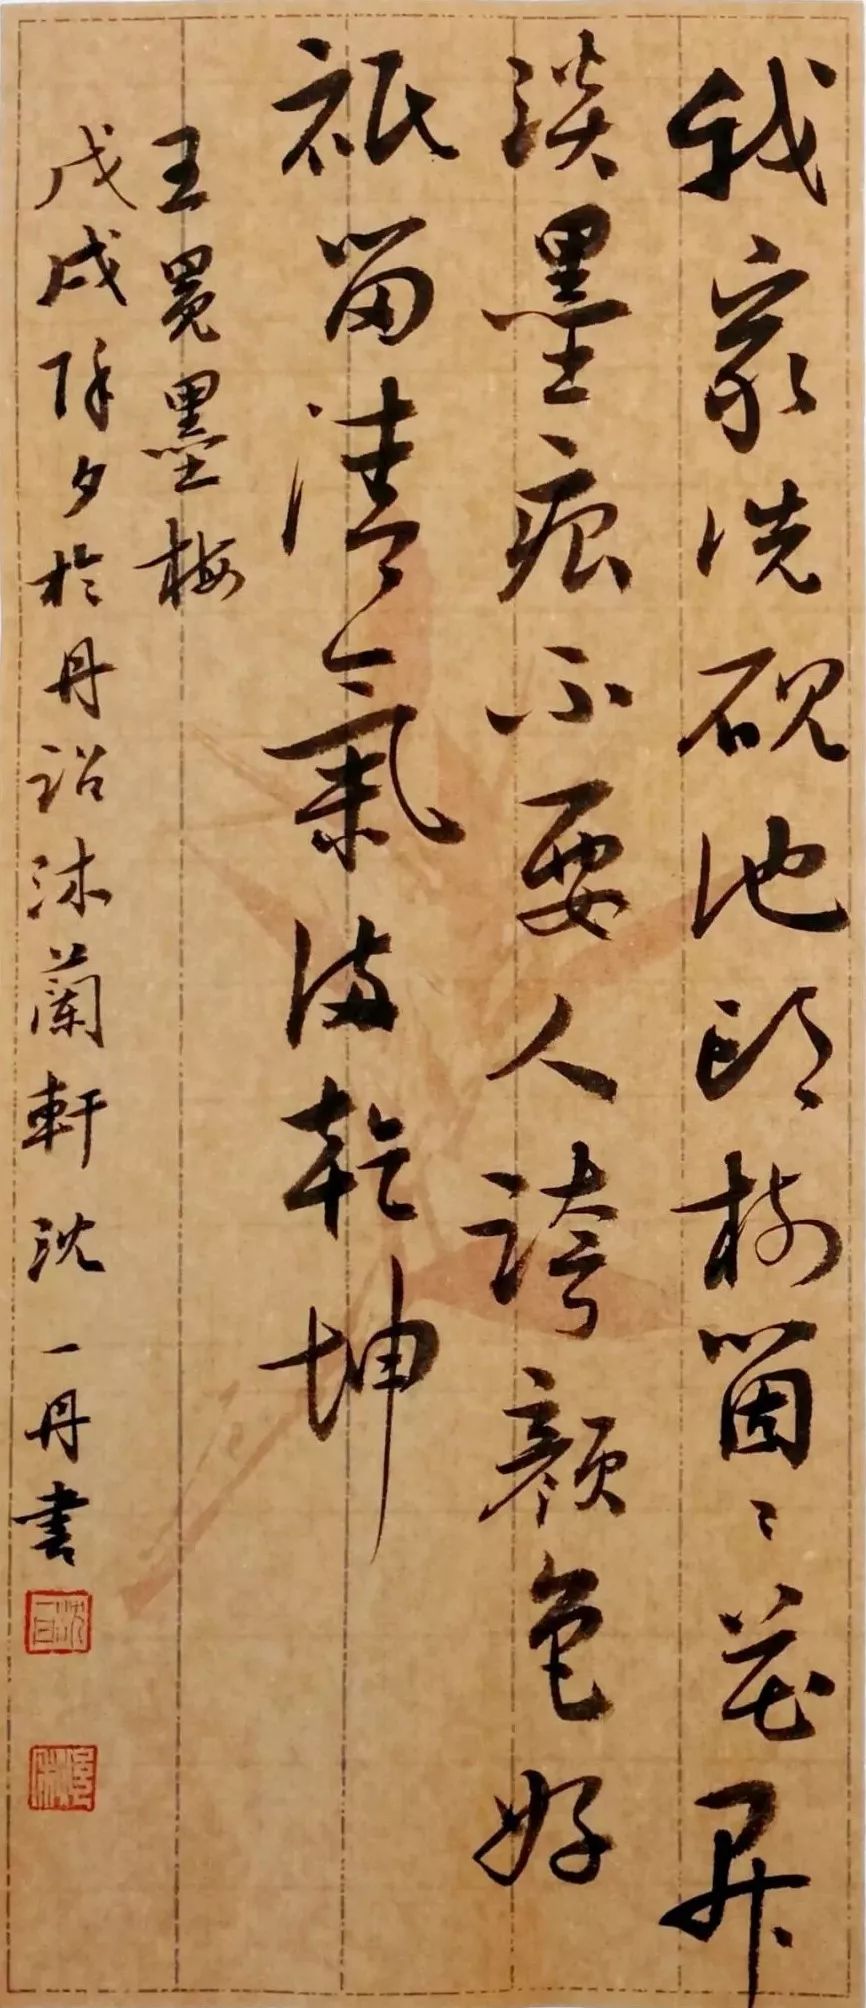 我家洗硯池頭樹箇〻花開
淡墨痕不要人誇顏色好
祇留清氣滿乾坤
王冕墨梅
戊戌除夕於丹詔沐蘭軒沈一丹書